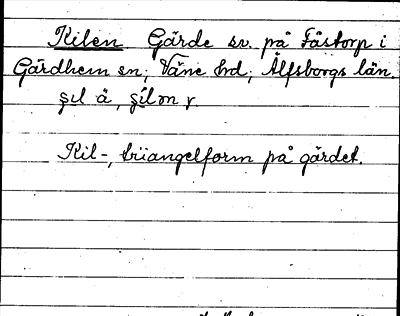 Kilen Gärde sv. på Fåstorp i
Gärdhem sn; Väne hd; Älfsborgs län.
på gärdet.
Kil-, triangelform på gärdet.